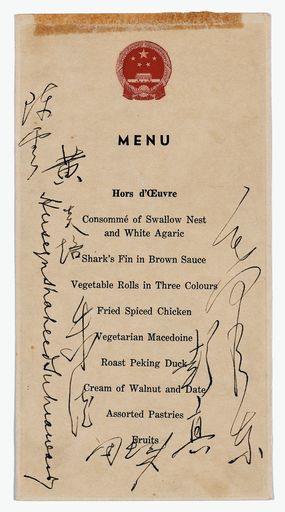 MENU
Hors d'Œuvre
Consommé of Swallow Nest
and White Agaric
Shark's Fin in Brown Sauce
Vegetable Rolls in Three Colours
Fried Spiced Chicken
Vegetarian Macedoine
Roast Peking Duck
Cream of Walnut and Date
Assorted Pastries
Fruits
Huseyn Shaheed Suhrawardy
黄炎培
朱德
彭真
毛澤東